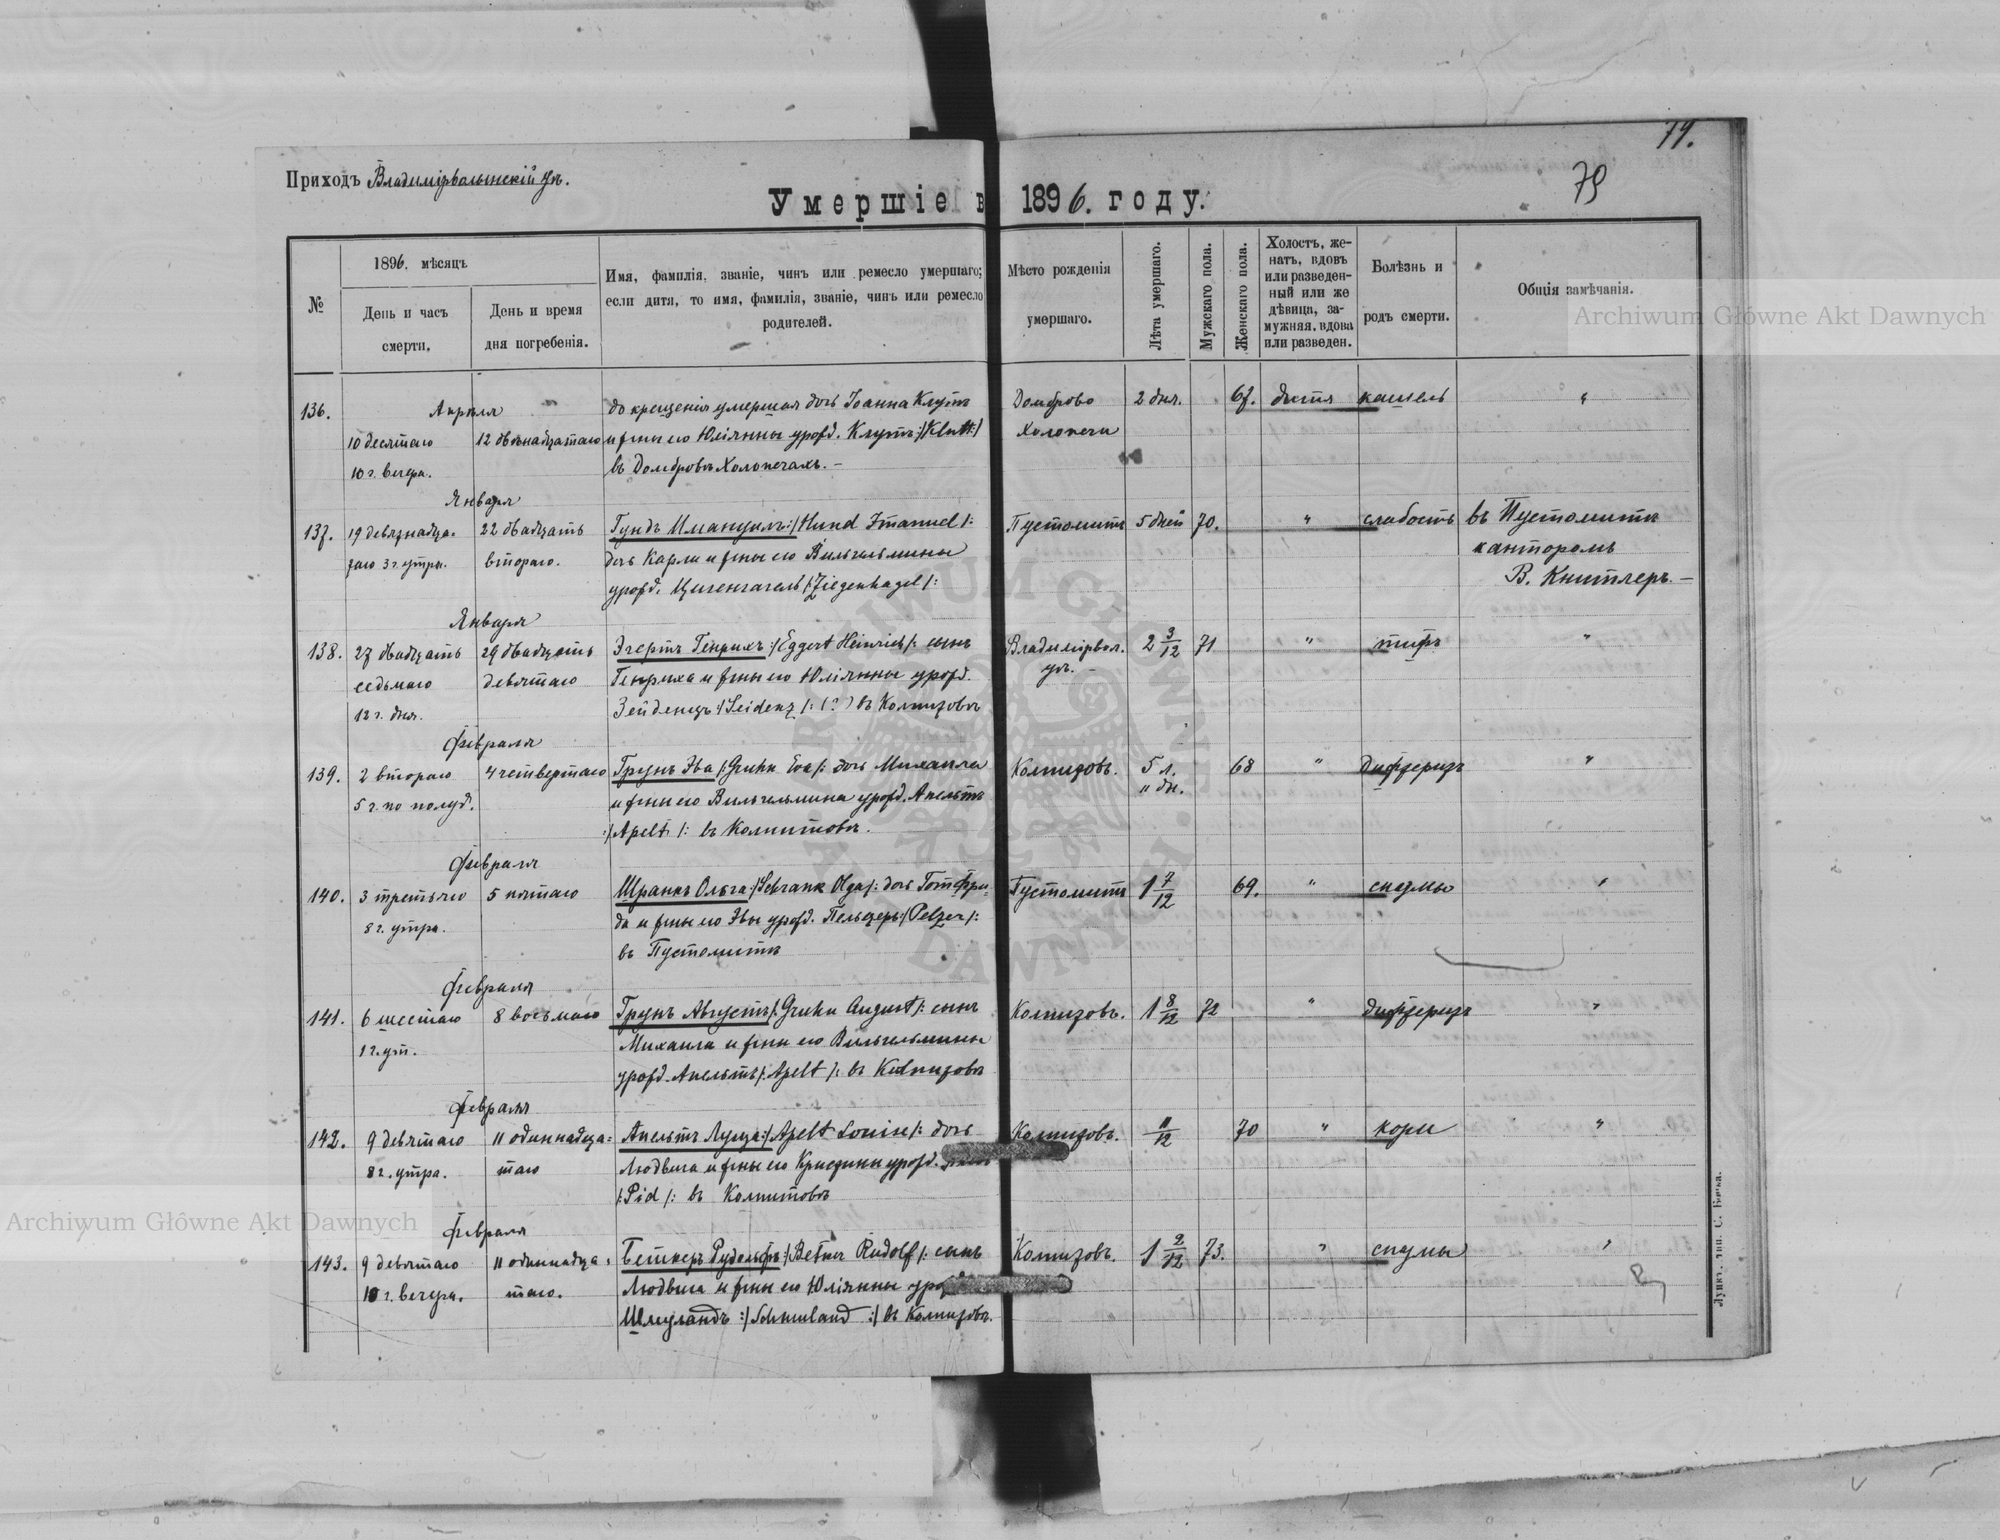 74.
79
Приходъ Владимірволынскій уѣ.
Умершіе въ 1896. году.
№
1896. мѣсяцъ
День и часъ смерти.
День и время дня погребенія.
Имя, фамилія, званіе, чинъ или ремесло умершаго;
если дитя, то имя, фамилія, званіе, чинъ или ремесло
родителей.
Мѣсто рожденія
умершаго.
Лѣта умершаго.
Мужскаго пола.
Женскаго пола.
Холостъ, же-
натъ, вдовъ
или разведен-
ный или же
дѣвица, за-
мужняя, вдова
или разведен.
Болѣзнь и
родъ смерти.
Общія замѣчанія.
Archiwum Główne Akt Dawnych
136. Апрѣля до крещенія умершая дочь Іоанна Клутъ Домброво 2 дня. 67. дитя кашель "
10 десятаго 12 двѣнадцатаго и жены его Юліянны урожд. Клутъ :/Klutt:/ Холопечи
10 г. вечера. въ Домбровѣ Холопечахъ. –
Января
137. 19 девятнадца- 22 двадцать Гундъ Имануилъ :/Hund Imanuel/: Пустомытъ 5 дней 70. " слабость въ Пустомытѣ
таго 3 г. утра. втораго. дочь Карла и жены его Вильгельмины канторомъ
урожд. Цигенгагель /:Ziegenhagel/: В. Книтлеръ. –
Января
138. 27 двадцать 29 двадцать Эгертъ Генрихъ :/Eggert Heinrich/: сынъ Владимірвол. 2 3/12 71 " тифъ "
седьмаго девятаго Генриха и жены его Юліянны урожд. уѣ. –
12 г. дня. Зейденцъ :/Seidenz/: (?) въ Колпизовѣ
Февраля
139. 2 втораго 4 четвертаго Грунъ Эва /:Gruhn Eva/: дочь Михаила Колпизовъ. 5 л. 68 " Дифтеритъ "
5 г. по полуд. и жены его Вильгельмина урожд. Апельтъ " дн.
:/Apelt/: въ Колпитовѣ.
Февраля
140. 3 третьяго 5 пятаго Шранкъ Ольга :/Schrank Olga/: дочь Готфри- Пустомытъ 1 7/12 69. " спазмы "
8 г. утра. да и жены его Эвы урожд. Пельцеръ :/Pelzer/:
въ Пустомытѣ
Февраля
141. 6 шестаго 8 восьмаго Грунъ Августъ /:Gruhn August/: сынъ Колпизовъ. 1 8/12 72 " дифтеритъ "
1 г. ут. Михаила и жены его Вильгельмины
урожд. Апельтъ /:Apelt/: въ Колпизовѣ
Февраля
142. 9 девятаго 11 одиннадца= Апельтъ Луиза :/Apelt Louise/: дочь Колпизовъ. 11/12 70 " кори "
8 г. утра. таго Людвига и жены его Кристины урожд.
/:Pid/: въ Колпитовѣ
Archiwum Główne Akt Dawnych
Февраля
143. 9 девятаго 11 одиннадца= Бетнеръ Рудольфъ :/Betner Rudolf/: сынъ Колпизовъ. 1 2/12 73. " спазмы "
10 г. вечера. таго. Людвига и жены его Юліянны
Шмуландъ :/Schmuland:/ въ Колпизовѣ.
Луцкъ, тип. С. Бочка.
ARCHIWUM GŁÓWNE AKT DAWNYCH